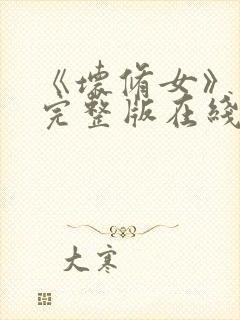 《壞脩女》
完整版在綫
大寒